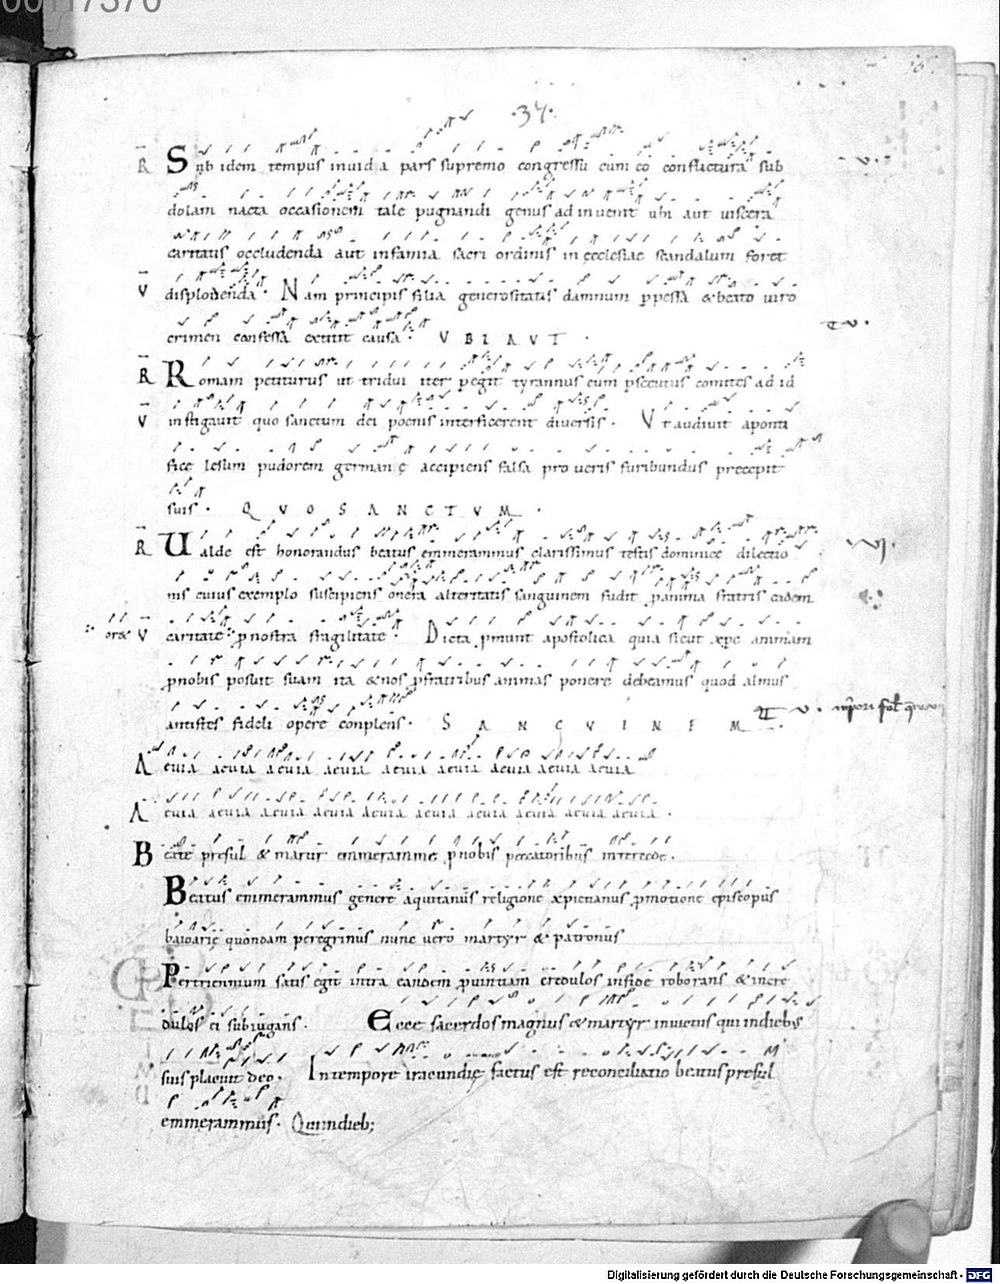 00117370
.37.
R Sub idem tempus invidia pars supremo congressu cum eo conflictura sub
dolam nacta occasionem tale pugnandi genus ad invenit ubi aut viscera
caritatis occludenda aut infamia sacri ordinis in ecclesiae scandalum foret
V displodenda. Nam principis filia generositatis damnum ppessa & beato viro
crimen confessa extitit causa. VBI AVT.
R Romam petiturus ut tridui iter pegit tyrannus cum psecutus comites ad id
V instigavit quo sanctum dei poenis interficerent diversis. Ut audivit a ponti
fice lesum pudorem germanę accipiens falsa pro veris furibundus precepit
suis. QVO SANCTVM.
R Valde est honorandus beatus emmerammus clarissimus testis dominice dilectio
nis cuius exemplo suscipiens onera alteritatis sanguinem fudit panima fratris eadem
V caritate pnostra fragilitate. Dicta pmunt apostolica quia sicut xpc animam
pnobis posuit suam ita & nos pfratribus animas ponere debeamus quod almus
antistes fideli opere conplens. SANGVINEM
Aevia aevia aevia aevia aevia aevia aevia aevia aevia
Aevia aevia aevia aevia aevia aevia aevia aevia aevia aevia.
Beate presul & martir emmeramme pnobis peccatoribus intercede.
Beatus emmerammus genere aquitanus religione xpictianus pmotione episcopus
baioarię quondam peregrinus nunc vero martyr & patronus
Pertriennium satis egit intra eandem pvintiam credulos infide roborans & incre
dulos ei subiugans. Ecce sacerdos magnus & martyr invictus qui indiebus
suis placuit deo. Intempore iracundię factus est reconciliatio beatus presul
emmerammus. Quindieb;
Digitalisierung gefördert durch die Deutsche Forschungsgemeinschaft - DFG